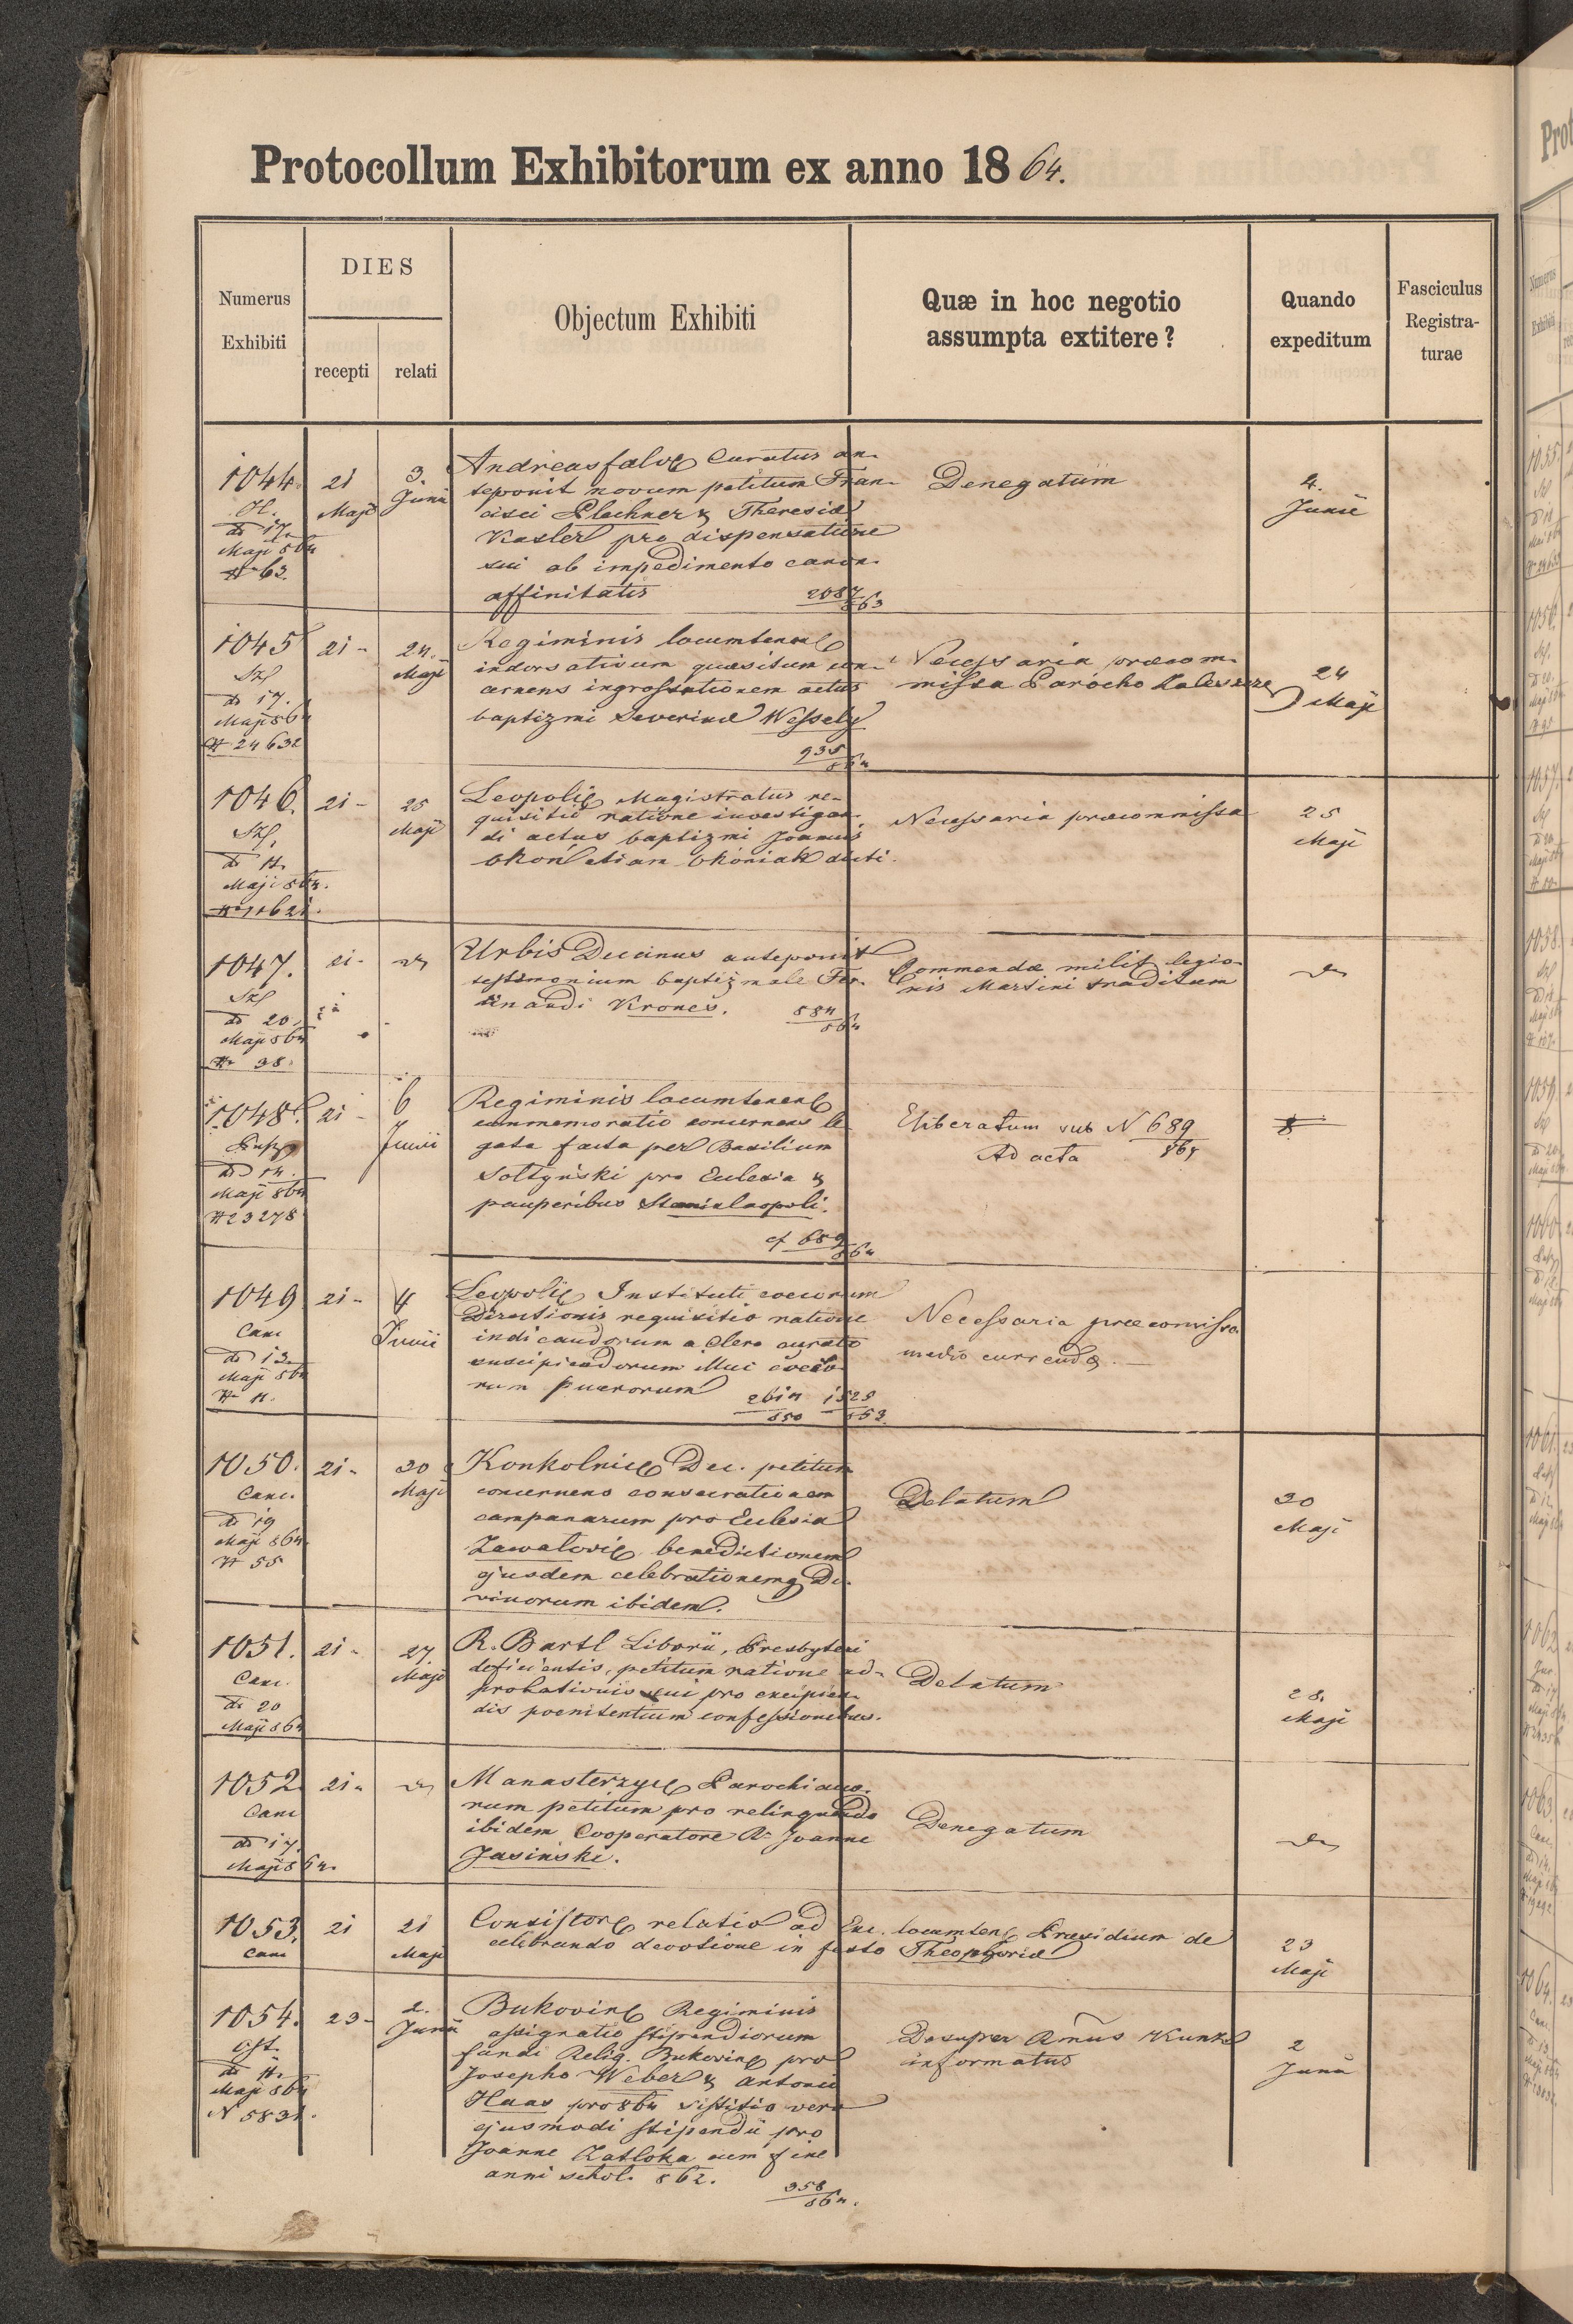 Protocollum Exhibitorum ex anno 1864.
Numerus Exhibiti
DIES
recepti
relati
Objectum Exhibiti
Quæ in hoc negotio
assumpta extitere?
Quando
expeditum
Fasciculus
Registra-
turae
1044. 21 Maji 3. Junii
H.
dt 17.
Maji 864
N 63.
Andreasfalvæ Curatus an-
teponit novum petitum Fran-
cisci Plechner & Theresiæ
Kasler pro dispensatione
sui ab impedimento canon.
affinitatis 2087/863
Denegatum
4.
Junii
1045 21- 24. Maji
dt 17.
Maji 864
N 24632
Regiminis locumtenen
indorsativum quæsitum con-
cernens ingrossationem actus
baptizmi Severinæ Wessely
935/864
Necessaria præcom-
missa Parocho
24
Maji
1046. 21- 25 Maji
dt 11.
Maji 864.
Leopoli Magistratus re-
quisitio ratione investigan-
di actus baptizmi Joannis
Okon etiam Okoniak dicti.
Necessaria præcommissa
25
Maji
1047. 21-
dt 20.
Maji 864
N 38.
Urbis Decanus anteponit
testimonium baptizmale Fer-
dinandi Krones. 884/864
Commendæ milit. legio-
nis Martini traditum
1048. 21- 6 Junii
dt 14.
Maji 864
N 23278
Regiminis locumtenen
commemoratio concernens le-
gata facta per Basilium
Soltyński pro Ecclesia &
pauperibus Stanislaopoli.
cf 689/864
Eliberatum sub N 689/864
Ad acta
1049 21- 4 Junii
Canc
dt 13.
Maji 864
N 11.
Leopoli Instituti coecorum
Directionis requisitio ratione
indicandorum a Clero curato
suscipiendorum illuc coeco-
rum puerorum 2614/850 1523/853.
Necessaria præcomissa
medio currendæ.—
1050. 21- 30 Maji
Canc.
dt 19
Maji 864.
N 55
Konkolnic Dec. petitum
concernens consecrationem
campanarum pro Ecclesia
Zawalovi benedictionem
ejusdem celebrationemq Di-
vinorum ibidem.
Delatum
30
Maji
1051. 21- 27. Maji
Canc.
dt 20
Maji 864
R. Bartl Liborii, Presbyteri
deficientis, petitum ratione ad-
probationis sui pro excipien-
dis poenitentium confessionibus.
Delatum
28.
Maji
1052 21-
Canc
dt 17.
Maji 864.
Manasterzyc Parochiano-
rum petitum pro relinquendo
ibidem Cooperatore R. Joanne
Jasinski.
Denegatum
1053. 21 21 Maji
Canc
Consistor relatio ad Exc. locumten Præsidium de
celebrando devotione in festo Theophoriæ
23
Maji
1054. 23- 2. Junii
dt 11.
Maji 864
N 5831.
Bukovin Regiminis
assignatio stipendiorum
fundi Relig. Bukovin pro
Josepho Weber & Antonio
Haas pro 864 sistitio vero
ejusmodi stipendii pro
Joanne Zatloka cum fine
anni schol. 862. 358/864.
Desuper Rmus Kunz
informatus
2
Junii